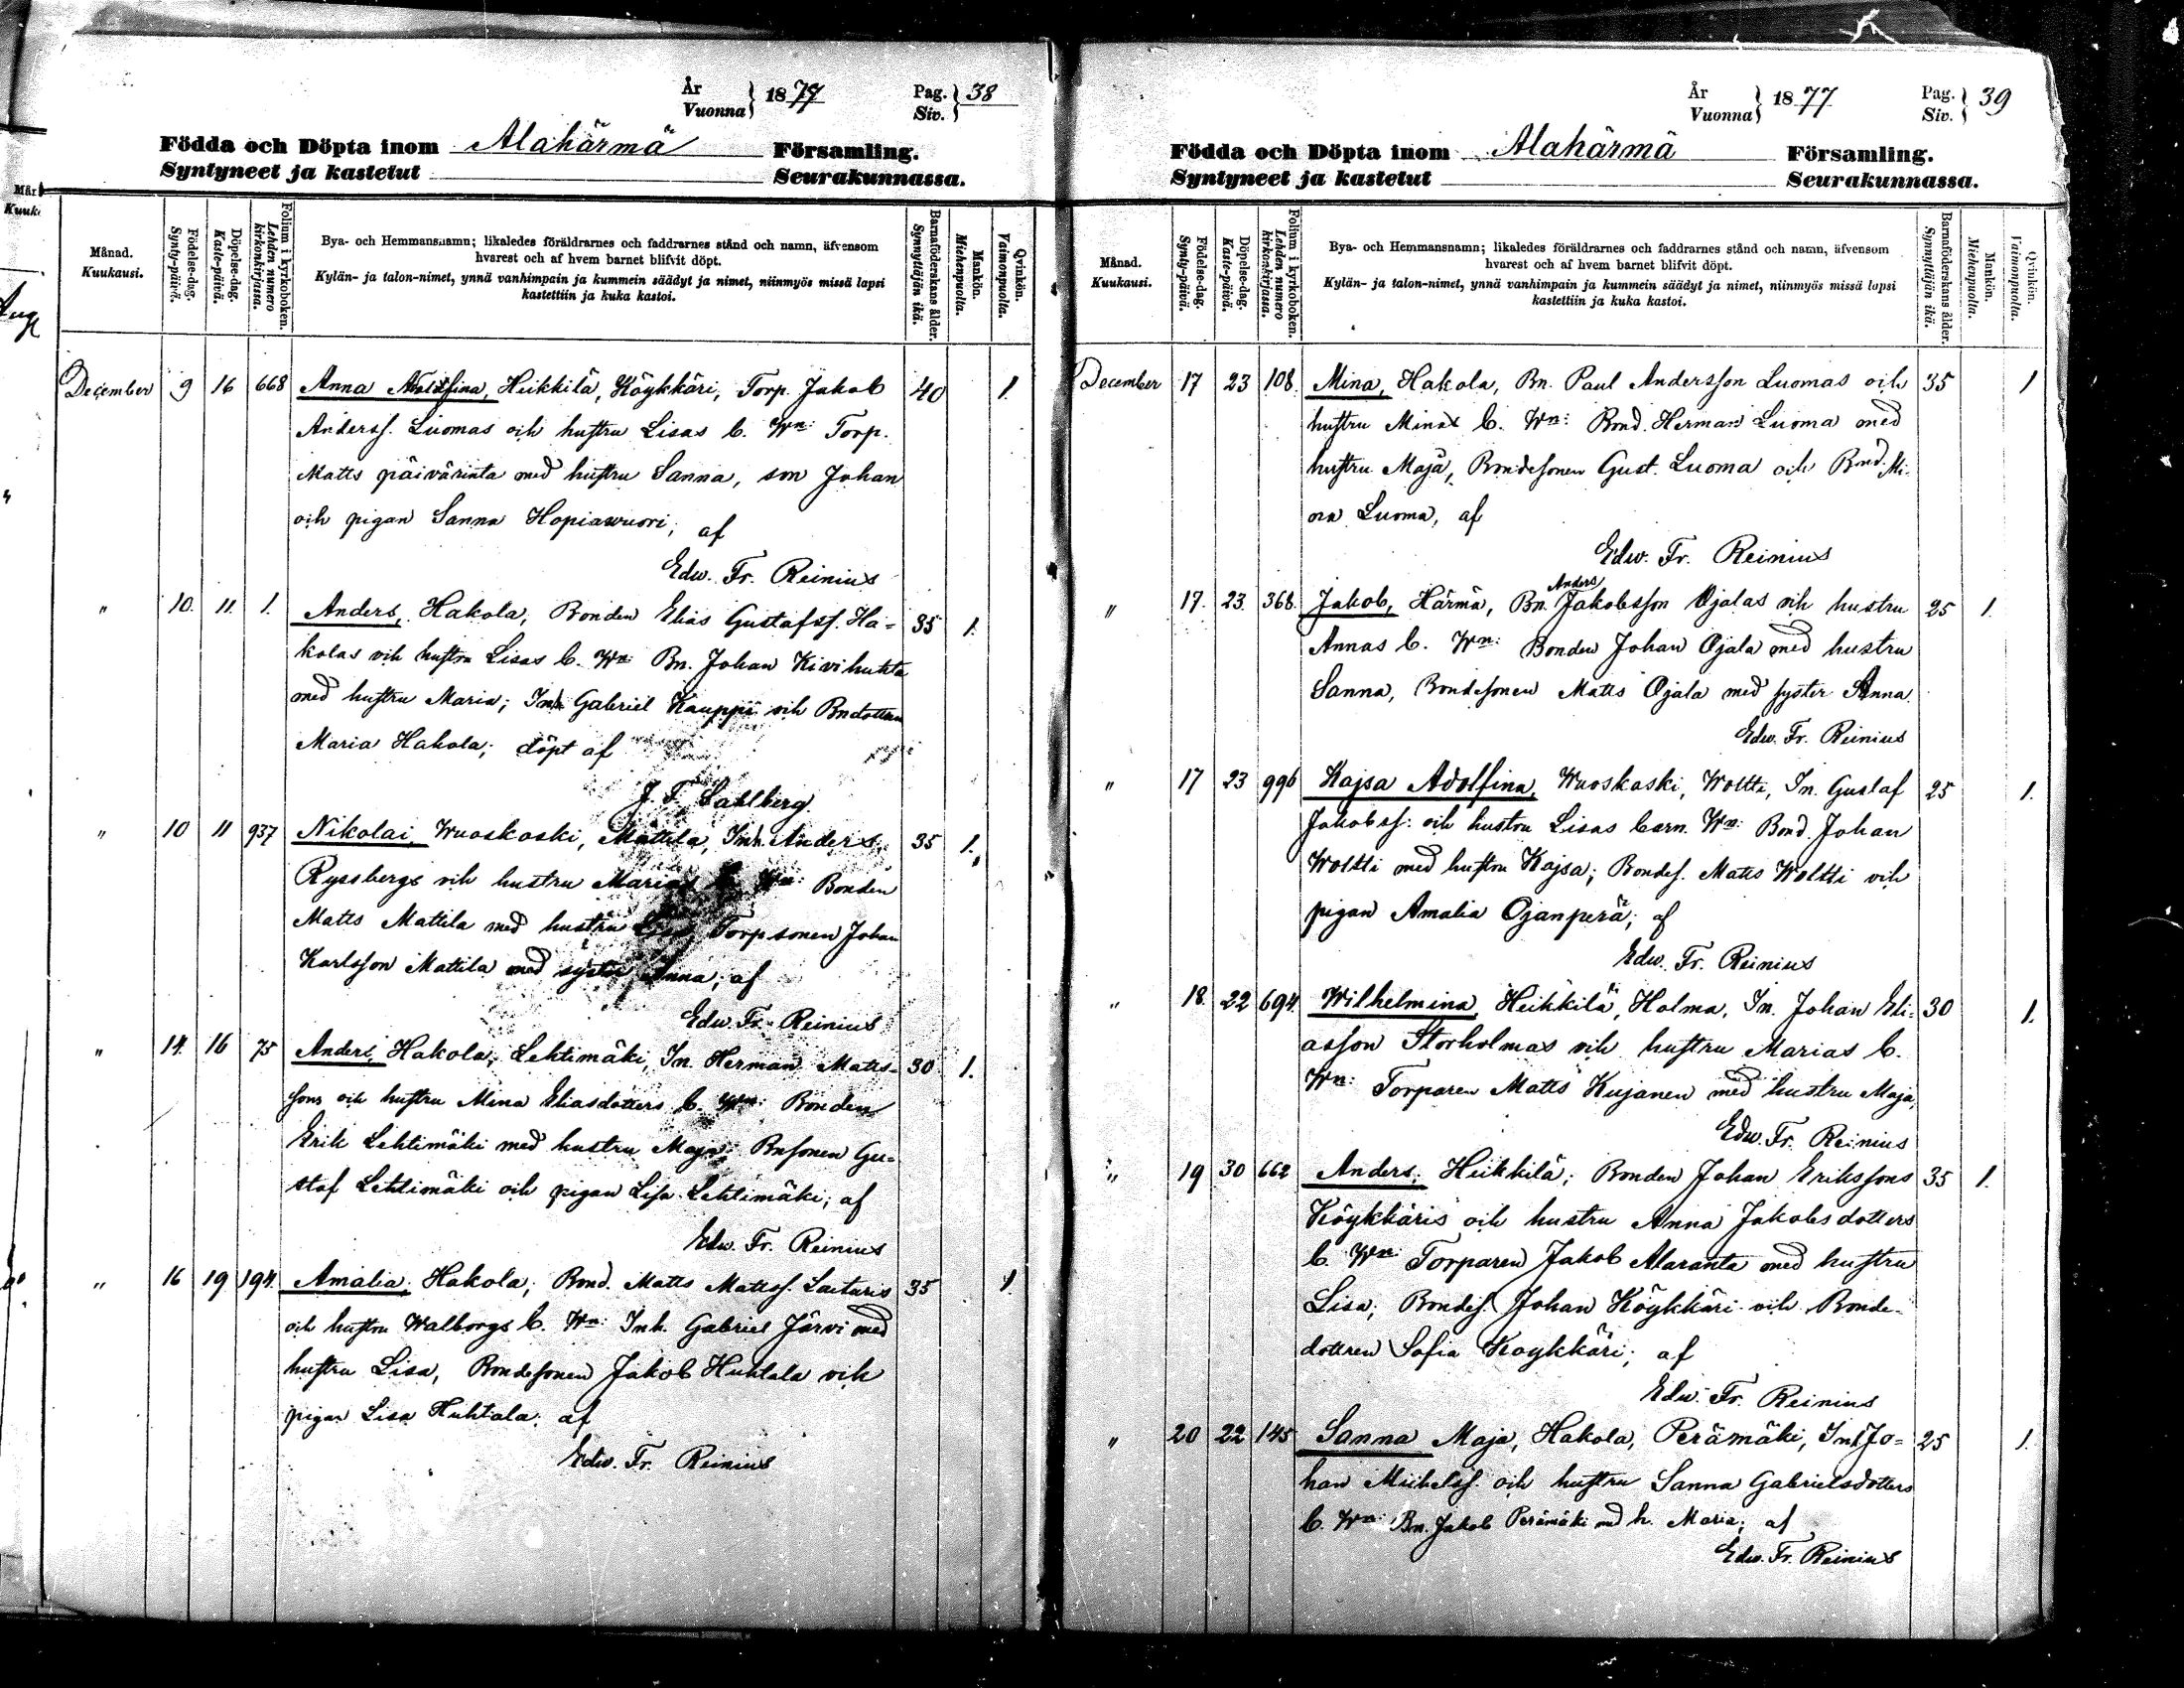 År
Vuonna } 1877
Pag.
Siv. } 38
Födda och Döpta inom Alahärmä Församling.
Syntyneet ja kastetut Seurakunnassa.
Månad.
Kuukausi.
Födelse-dag.
Synty-päivä.
Döpelse-dag.
Kaste-päivä.
Folium i kyrkoboken.
Lehden numero kirkonkirjassa.
Bya- och Hemmansnamn; likaledes föräldrarnes och faddrarnes stånd och namn, äfvensom
hvarest och af hvem barnet blifvit döpt.
Kylän- ja talon-nimet, ynnä vanhimpain ja kummein säädyt ja nimet, niinmyös missä lapsi
kastettiin ja kuka kastoi.
Barnaföderskans ålder.
Synnyttäjän ikä.
Mankön.
Miehenpuolta.
Qvinkön.
Vaimonpuolta.
December 9 16 668 Anna Adolfina, Heikkilä, Köykkäri, Torp. Jakob 40 1.
Anderss. Luomas och hustru Lisas b. Wn: Torp.
Matts päivärinta med hustru Sanna, son Johan
och pigan Sanna Hopiawuori; af
Edw. Fr. Reinius
" 10. 11. 1. Anders, Hakola; Bonden Elias Gustafss. Ha- 35 1.
kolas och hustru Lisas b. Wn: Bn. Johan Kivihuhta
med hustru Maria; Inh. Gabriel Kauppi och Bndottren
Maria Hakola; döpt af
J. F. Sahlberg
" 10 11 937 Nikolai, Wuoskoski, Mattila, Inh. Anders 35 1.
Ryssbergs och hustru Marias b. Wn: Bonden
Matts Mattila med hustru Torpsonen Johan
Karlsson Mattila med syster Anna; af
Edw. Fr. Reinius
" 14. 16 75 Anders, Hakola, Lehtimäki, In. Herman Matts- 30 1.
sons och hustru Mina Eliasdotters b. Wn: Bonden
Erik Lehtimäki med hustru Maja; Bnsonen Gu-
staf Lehtimäki och pigan Lisa Lehtimäki; af
Edw. Fr. Reinius
" 16 19 194. Amalia; Hakola; Bond. Matts Mattss. Laituris 35 1.
och hustru Walborgs b. Wn: Inh. Gabriel Järvi med
hustru Lisa, Bondesonen Jakob Huhtala och
pigan Lisa Huhtala; af
Edw. Fr. Reinius
År
Vuonna } 1877
Pag.
Siv. } 39
Födda och Döpta inom Alahärmä Församling.
Syntyneet ja kastetut Seurakunnassa.
Månad.
Kuukausi.
Födelse-dag.
Synty-päivä.
Döpelse-dag.
Kaste-päivä.
Folium i kyrkoboken.
Lehden numero kirkonkirjassa.
Bya- och Hemmansnamn; likaledes föräldrarnes och faddrarnes stånd och namn, äfvensom
hvarest och af hvem barnet blifvit döpt.
Kylän- ja talon-nimet, ynnä vanhimpain ja kummein säädyt ja nimet, niinmyös missä lapsi
kastettiin ja kuka kastoi.
Barnaföderskans ålder.
Synnyttäjän ikä.
Mankön.
Miehenpuolta.
Qvinkön.
Vaimonpuolta.
December 17 23 108. Mina, Hakola, Bn. Paul Andersson Luomas och 35 1
hustru Minas b. Wn: Bond. Herman Luoma med
hustru Maja, Bondesonen Gust. Luoma och Bond. Mi-
na Luoma, af
Edw. Fr. Reinius
Anders
" 17. 23. 368. Jakob, Härmä, Bn. Jakobsson Ojalas och hustru 25 1.
Annas b. Wn: Bonden Johan Ojala med hustru
Sanna, Bondesonen Matts Ojala med syster Anna.
Edw. Fr. Reinius
" 17 23 996 Kajsa Adolfina, Wuoskoski, Woltti, In. Gustaf 25 1.
Jakobss. och hustru Lisas barn. Wn: Bond. Johan
Woltti med hustru Kajsa; Bondes. Matts Woltti och
pigan Amalia Ojanperä; af
Edw. Fr. Reinius
" 18. 22 694. Wilhelmina, Heikkilä, Holma, In. Johan Eli- 30 1.
asson Storholmas och hustru Marias b.
Wn: Torparen Matts Kujanen med hustru Maja,
Edw. Fr. Reinius
" 19 30 662 Anders; Heikkilä; Bonden Johan Erikssons 35 1.
Köykkäris och hustru Anna Jakobsdotters
b. Wn: Torparen Jakob Alaranta med hustru
Lisa; Bondes. Johan Köykkäri och Bonde-
dottren Sofia Köykkäri; af
Edw. Fr. Reinius
" 20 22 145 Sanna Maja, Hakola, Perämäki, Inh Jo- 25 1.
han Michelss. och hustru Sanna Gabrielsdotters
b. Wn: Bn. Jakob Perämäki med h. Maria; af
Edw. Fr. Reinius